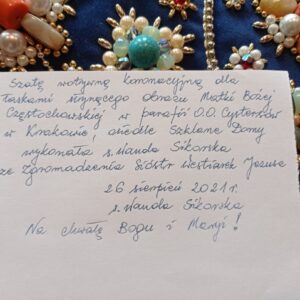 Szatę wotywną koronacyjną dla
łaskami słynącego obrazu Matki Bożej
Częstochowskiej w parafii O.O. Cystersów
w Krakowie, osiedle Szklane Domy
wykonała s. Wanda Sikorska
ze Zgromadzenia Sióstr Westiarek Jezusa
26 sierpień 2021 r.
s. Wanda Sikorska
Na chwałę Bogu i Maryi!